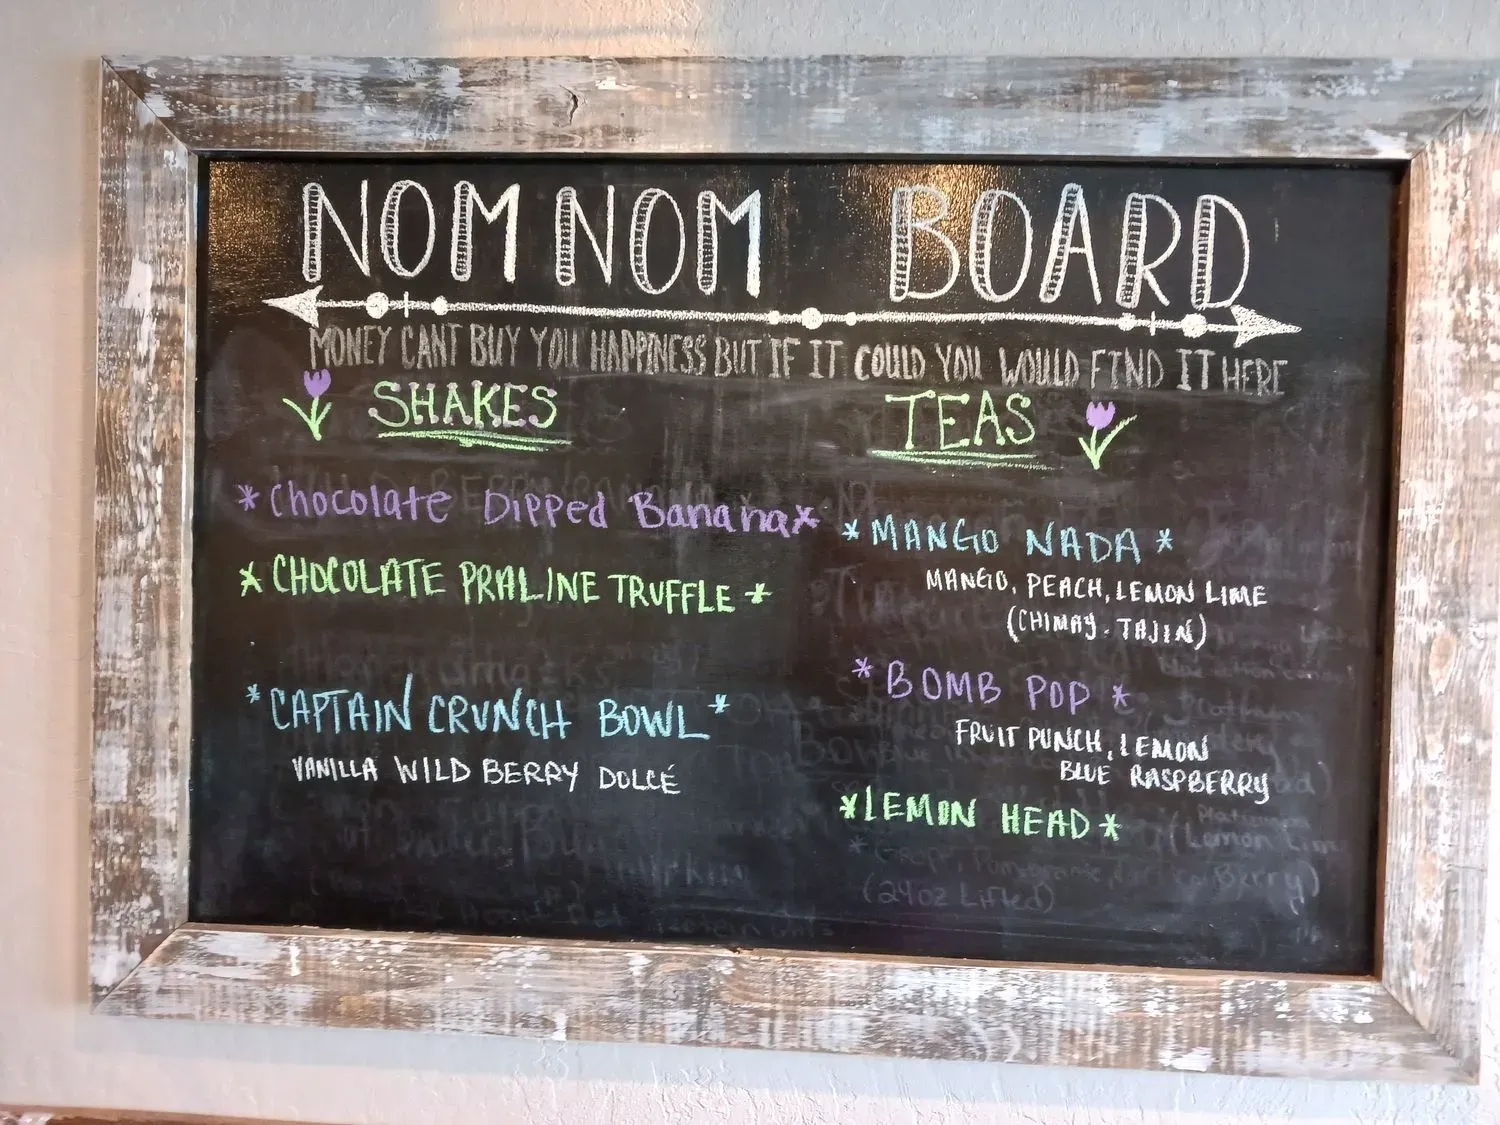 NOM NOM BOARD
MONEY CANT BUY YOU HAPPINESS BUT IF IT COULD YOU WOULD FIND IT HERE
SHAKES
*Chocolate Dipped Banana*
*CHOCOLATE PRALINE TRUFFLE*
*CAPTAIN CRUNCH BOWL*
VANILLA WILD BERRY DOLCÉ
TEAS
*MANGO NADA*
MANGO, PEACH, LEMON LIME
(CHIMAY. TAJIN)
*BOMB POP*
FRUIT PUNCH, LEMON
BLUE RASPBERRY
*LEMON HEAD*
(24oz Lifted)